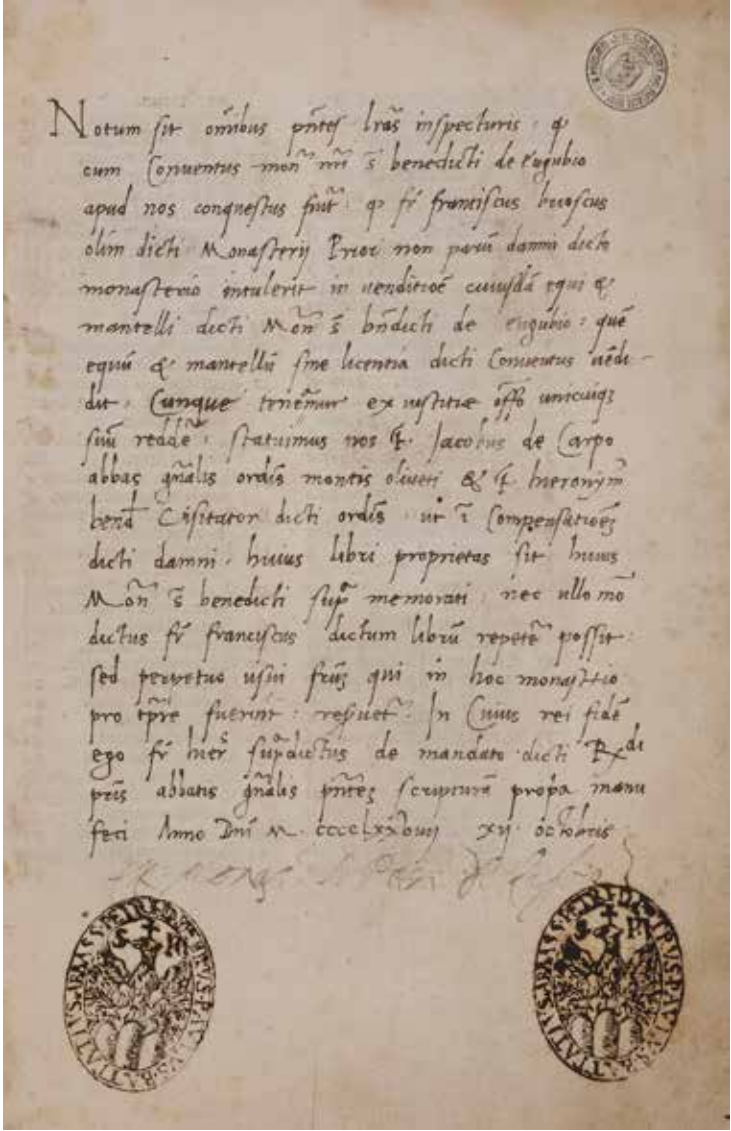 Notum sit om̄ibus pn̄tes lrās inspecturis · ꝙ
cum Conuentus mon̄ nr̄i s̄ benedicti de eugubio
apud nos conquestus fuit · ꝙ fr̄ franciscus
olim dicti Monasterij Prior non parū damni dicto
monasterio intulerit in uenditiōe cuiusdā equi &
mantelli dicti Mon̄ s̄ bn̄dicti de eugubio : quē
equū & mantellū sine licentia dicti Conuentus uēdi-
dit · Cunque tenemur ex iustitiæ offō unicuiqꝫ
suū reddē · statuimus nos fr̄ · Jacobus de Carpo
abbas gn̄alis ordīs montis oliueti & fr̄ hieronym̄
bend̄ Visitator dicti ordīs · ut ī Compensatiōeꝫ
dicti damni · huius libri proprietas sit huius
Mon̄ s̄ benedicti sup̄ memorati : nec ullo mō
dictus fr̄ franciscus dictum librū repetē possit :
sed perpetuo usui frūꝫ qui in hoc monasterio
pro tp̄re fuerint : reseruet̄ · In Cuius rei fidē
ego fr̄ hier̄ sup̄dictus de mandato dicti Rx̄di
pr̄is abbatis gn̄alis pn̄teꝫ scripturā propa manu
feci Anno Dn̄i M · ccccLxxxouij xij · octobris
S P
S P